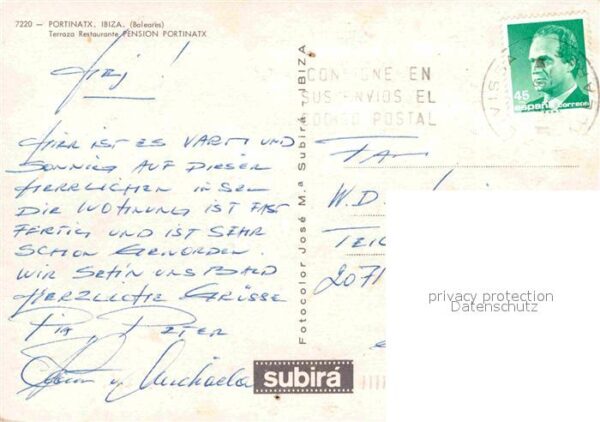 7220 — PORTINATX. IBIZA. (Baleares)
Terraza Restaurante PENSION PORTINATX
Hej!
HIER IST ES VARM UND
SONNIG AUF DIESER
HERRLICHEN INSEL
DIE WOHNUNG IST FAST
FERTIG UND IST SEHR
SCHON GEWORDEN.
WIR SEHN UNS BALD
HERZLICHE GRÜSSE
PIA PETER
Michaela
Fotocolor José M.ª Subirá - IBIZA
subirá
CONSIGNE EN
SUS ENVIOS EL
CODIGO POSTAL
45
españa correos
FAM
W.D.
2071
privacy protection
Datenschutz